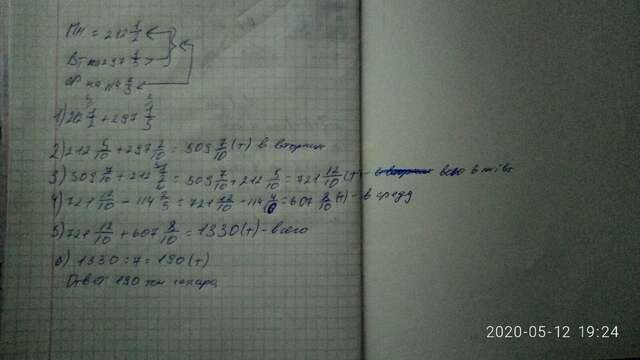 Пн = 212 1/2
Вт на 297 1/5 >
Ср на 114 2/5 <
1) 212 1/2 + 297 1/5
2) 212 5/10 + 297 2/10 = 509 7/10 (т) в вторник
3) 509 7/10 + 212 1/2 = 509 7/10 + 212 5/10 = 721 12/10 (т) - всего в пн и вт
4) 721 12/10 - 114 2/5 = 721 12/10 - 114 4/10 = 607 8/10 (т) - в среду
5) 721 12/10 + 607 8/10 = 1330 (т) - всего
6) 1330 : 7 = 190 (т)
Ответ 190 тон сахара
2020-05-12 19:24